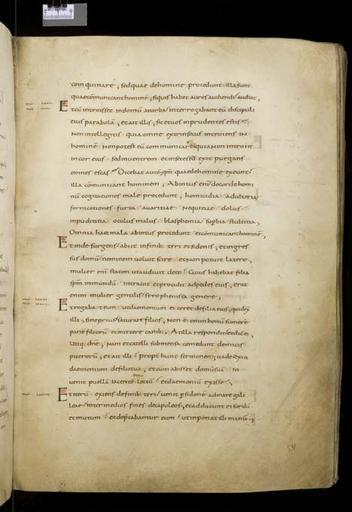 coinquinare, sed quae de homine procedunt illa sunt
quae communicant hominem, siquis habet aures audiendi audiat,
Et cum introisset in domum a turba interrogabant eum discipuli
eius parabolā, et ait illis, sic et vos inprudentes estis
Non intellegitis quia omne extrinsecus introiens in
hominē non potest eū communicare quia non introit
in cor eius sed in ventrem et in secessū exit purgans
omnes escas Dicebat autē qm quae de homine exeunt
illa communicant hominem, Ab intus enī de corde homi
nū cogitationes malae procedunt, homicidia adulteria
fornicationes furta avaritiae nequitiae dolus
inpudicitia oculus malus blasphemia supbia stultitia,
Omnia haec mala abintus procedunt et communicant hominē,
Et inde surgens abiit in fines tyri et sidonis, et ingres
sus domū neminem voluit scire et non potuit latere,
mulier enī statim ut audivit de eo cuius habebat filia
spm inmundū intravit et procidit ad pedes eius, erat
enim mulier gentilis syrophenissa genere,
Et rogabat eum ut daemonium eiceret de filia eius, qui dixit
illi, sine prius saturari filios, Non ē enim bonū sumere
panē filiorū et mittere canib; At illa respondit et dicit ei,
Utiq; dnē, nam et catelli sub mensa comedunt de micis
puerorū, et ait illi propt hunc sermonem vade exiit
daemonium de filia tua, et cum abisset domū suā in
venit puellā iacentē supra lectū et daemoniū exisse,
Et iterū exiens de finib; tyri venit p sidonē ad mare galil
eae inter medios fines decapoleos, et adducunt ei surdū
et mutum et depcabantur eum ut inponat illi manū,